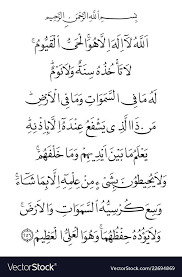 بِسْمِ اللَّهِ الرَّحْمَنِ الرَّحِيمِ
اَللَّهُ لَا إِلَهَ إِلَّا هُوَ الْحَيُّ الْقَيُّومُ
لَا تَأْخُذُهُ سِنَةٌ وَلَا نَوْمٌ
لَهُ مَا فِي السَّمَوَاتِ وَمَا فِي الْأَرْضِ
مَنْ ذَا الَّذِي يَشْفَعُ عِنْدَهُ إِلَّا بِإِذْنِهِ
يَعْلَمُ مَا بَيْنَ أَيْدِيهِمْ وَمَا خَلْفَهُمْ
وَلَا يُحِيطُونَ بِشَيْءٍ مِنْ عِلْمِهِ إِلَّا بِمَا شَاءَ
وَسِعَ كُرْسِيُّهُ السَّمَوَاتِ وَالْأَرْضَ
وَلَا يَؤُدُهُ حِفْظُهُمَا وَهُوَ الْعَلِيُّ الْعَظِيمُ
VectorStock
VectorStock.com/22694869